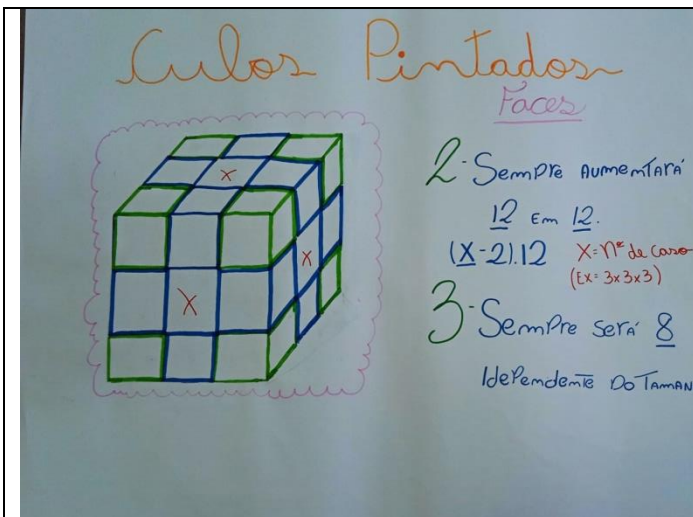 Cubos Pintados
Faces
X
X
X
2- Sempre Aumentará
12 Em 12.
(X-2).12 X=nº de caso
(Ex= 3x3x3)
3- Sempre será 8
Idependente Do Taman